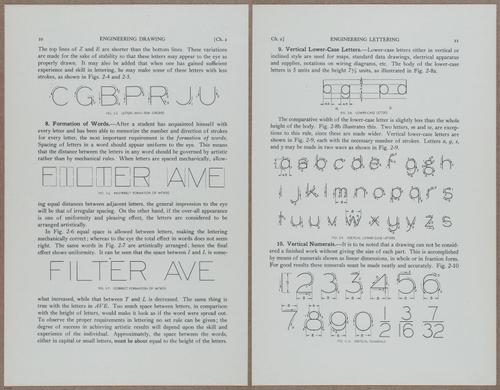 10 ENGINEERING DRAWING [Ch. 2
The top lines of Z and E are shorter than the bottom lines. These variations
are made for the sake of stability so that these letters may appear to the eye as
properly drawn. It may also be added that when one has gained sufficient
experience and skill in lettering, he may make some of these letters with less
strokes, as shown in Figs. 2-4 and 2-5.
C G B P R J U
8. Formation of Words.—After a student has acquainted himself with
every letter and has been able to memorize the number and direction of strokes
for every letter, the next important requirement is the formation of words.
Spacing of letters in a word should appear uniform to the eye. This means
that the distance between the letters in any word should be governed by artistic
rather than by mechanical rules. When letters are spaced mechanically, allow-
FILTER AVE
FIG. 2-6. INCORRECT FORMATION OF WORDS
ing equal distances between adjacent letters, the general impression to the eye
will be that of irregular spacing. On the other hand, if the over-all appearance
is one of uniformity and pleasing effect, the letters are considered to be
arranged artistically.
In Fig. 2-6 equal space is allowed between letters, making the lettering
mechanically correct; whereas to the eye the total effect in words does not seem
right. The same words in Fig. 2-7 are artistically arranged; hence the final
effect shows uniformity. It can be seen that the space between I and L is some-
FILTER AVE
FIG. 2-7. CORRECT FORMATION OF WORDS
what increased, while that between T and L is decreased. The same thing is
true with the letters in AVE. Too much space between letters, in comparison
with the height of letters, would make it look as if the word were spread out.
To observe the proper requirements in lettering no set rule can be given; the
degree of success in achieving artistic results will depend upon the skill and
experience of the individual. Approximately, the space between the words,
either in capital or small letters, must be about equal to the height of the letters.
Ch. 2] ENGINEERING LETTERING 11
9. Vertical Lower-Case Letters.—Lower-case letters either in vertical or
inclined style are used for maps, standard data drawings, electrical apparatus
and supplies, notations on wiring diagrams, etc. The body of the lower-case
letters is 5 units and the height 7½ units, as illustrated in Fig. 2-8a.
FIG. 2-8. LOWER-CASE LETTERS
The comparative width of the lower-case letter is slightly less than the whole
height of the body. Fig. 2-8b illustrates this. Two letters, m and w, are excep-
tions to this rule, since these are made wider. Vertical lower-case letters are
shown in Fig. 2-9, each with the necessary number of strokes. Letters a, g, t,
and y may be made in two ways as shown in Fig. 2-9.
FIG. 2-9. VERTICAL LOWER-CASE LETTERS
10. Vertical Numerals.—It is to be noted that a drawing can not be consid-
ered a finished work without giving the size of each part. This is accomplished
by means of numerals shown as linear dimensions, in whole or in fraction form.
For good results these numerals must be made neatly and accurately. Fig. 2-10
1 2 3 3 4 5 6
7 8 9 0 1/2 3/16 7/32
FIG. 2-10. VERTICAL NUMERALS